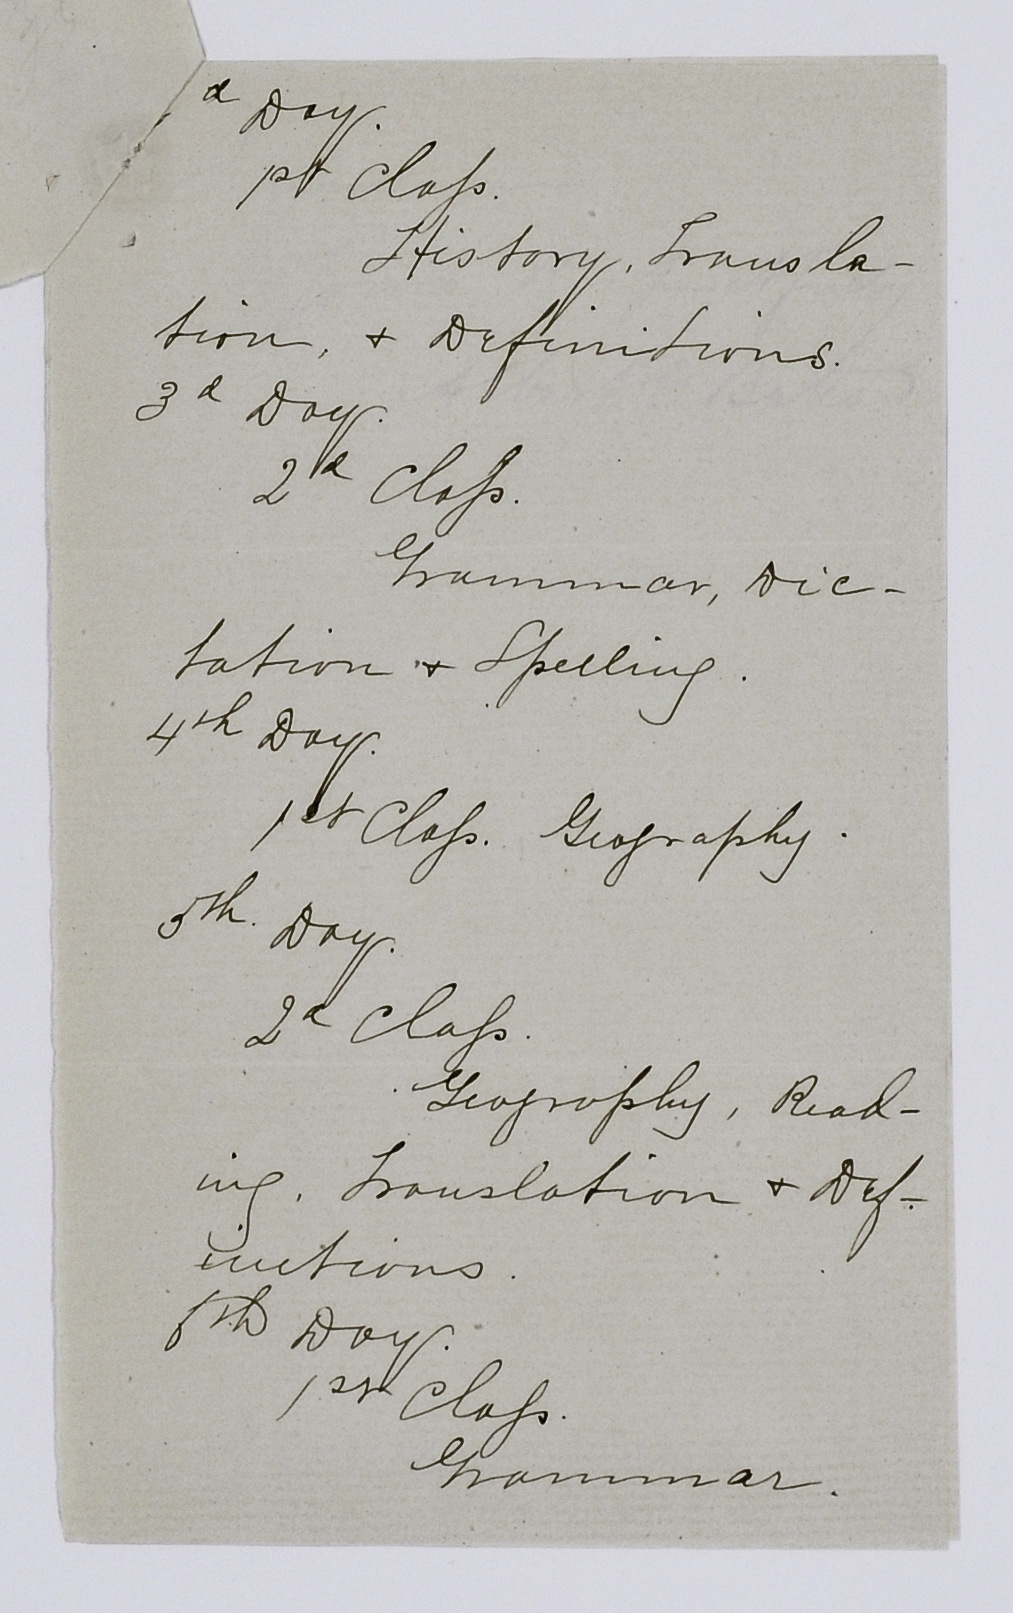 d Day.
1st Class.
History, Transla-
tion, & Definitions.
3d Day.
2d Class.
Grammar, Dic-
tation & Spelling.
4th Day.
1st Class. Geography.
5th. Day.
2d Class.
Geography, Read-
ing, Translation & Def-
initions.
6th Day.
1st Class.
Grammar.